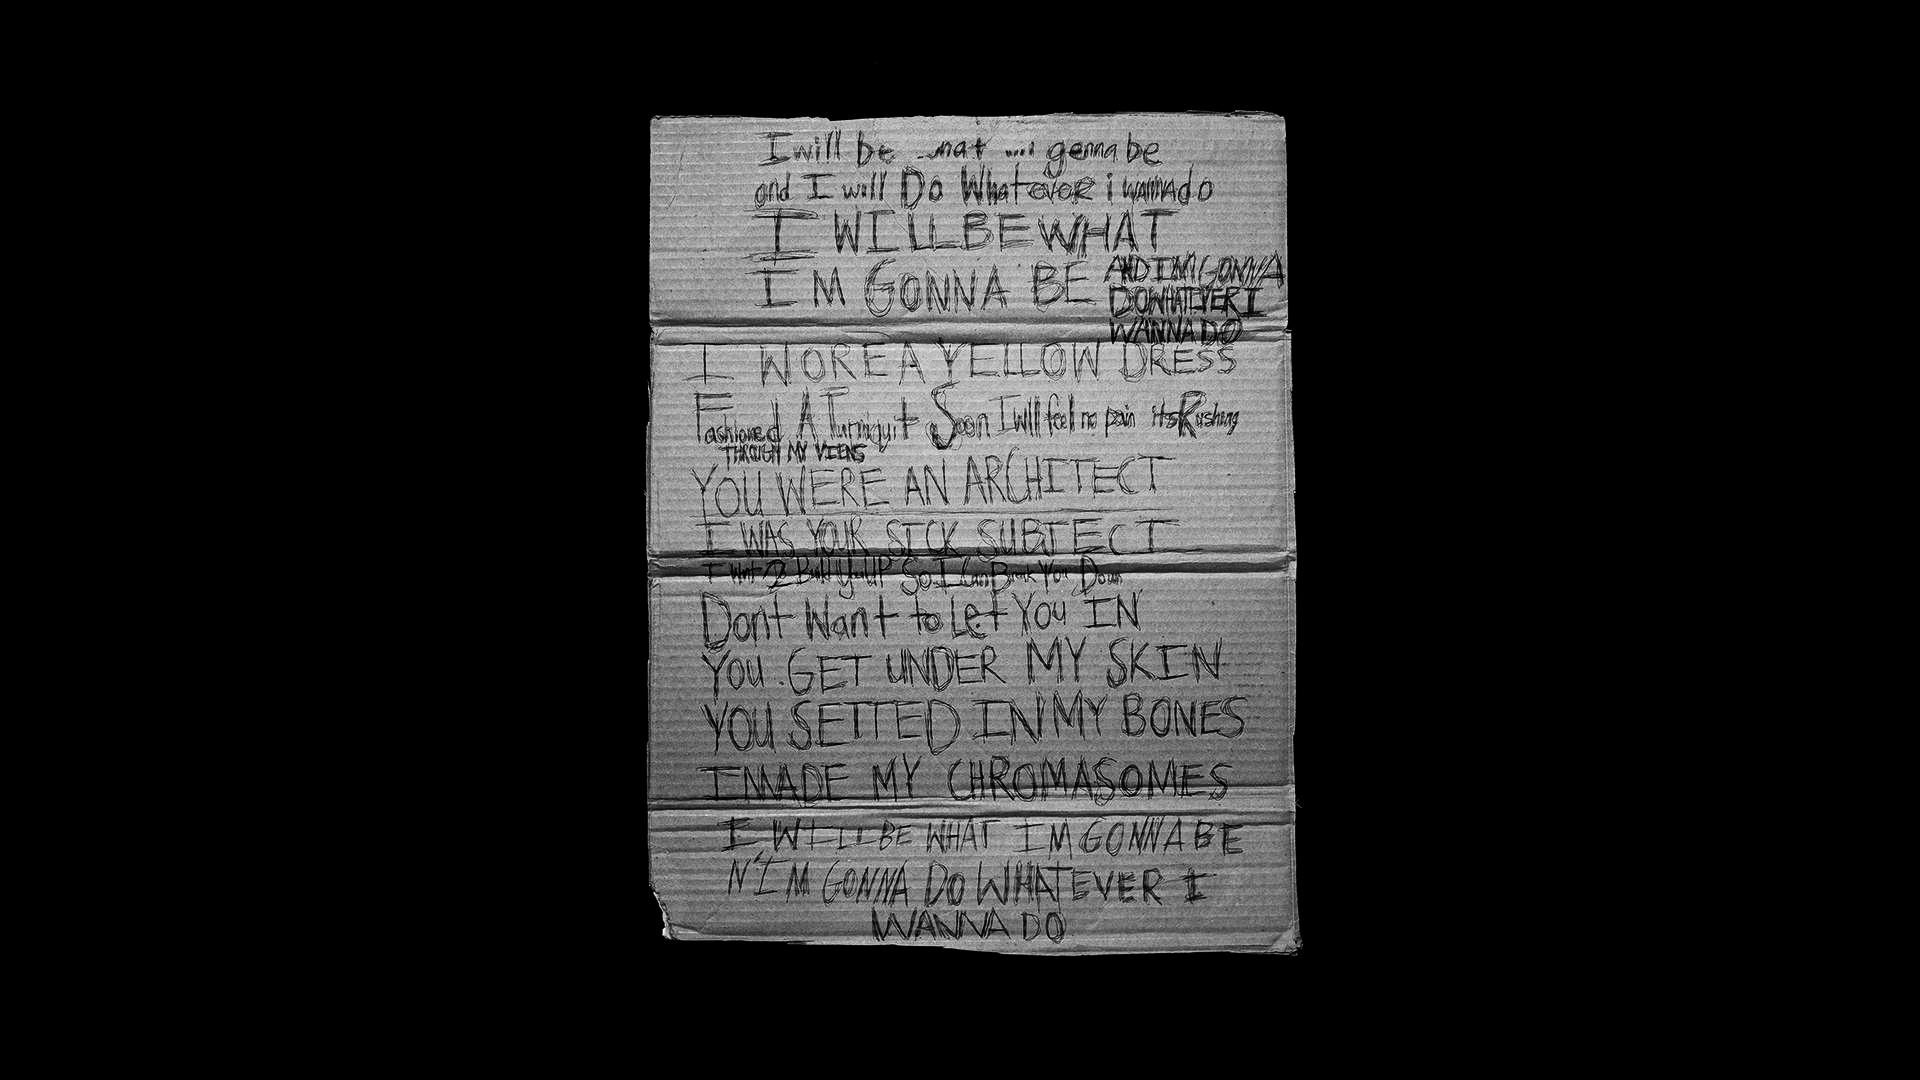 I will be gonna be
and I will Do Whatever i wanna do
I WILL BE WHAT
I M GONNA BE
AND IM GONNA
DO WHATEVER I
WANNA DO
I WORE A YELLOW DRESS
Fashioned A Turniquit Soon I will feel no pain its Rushing
THROUGH MY VIENS
YOU WERE AN ARCHITECT
I WAS YOUR SICK SUBJECT
I Want 2 Build You UP So I Can Break You Down
Dont Want to Let You IN
You GET UNDER MY SKIN
YOU SETTED IN MY BONES
I MADE MY CHROMASOMES
I WILL BE WHAT IM GONNA BE
N'IM GONNA DO WHATEVER I
WANNA DO